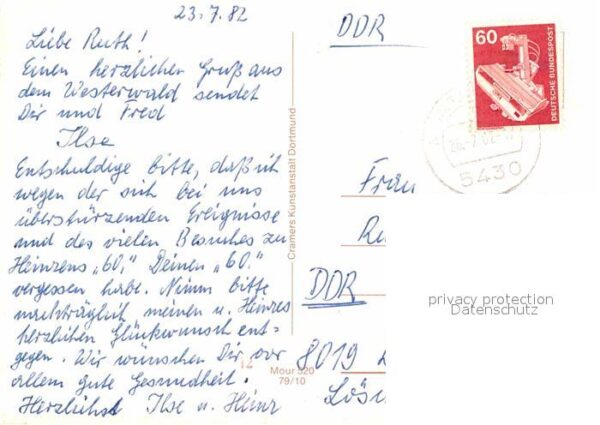 23.7.82
Liebe Ruth!
Einen herzlichen Gruß aus
dem Westerwald sendet
Dir und Fred
Ilse
Entschuldige bitte, daß ich
wegen der sich bei uns
überstürzenden Ereignisse
und des vielen Besuches zu
Heinzens „60.“ Deinen „60.“
vergessen habe. Nimm bitte
nachträglich meinen u. Heinzes
herzlichen Glückwunsch ent=
gegen. Wir wünschen Dir vor
allem gute Gesundheit.
Herzlichst Ilse u. Heinz
Cramers Kunstanstalt Dortmund
12
Mour 520
79/10
DDR
60
DEUTSCHE BUNDESPOST
5430
Frau
DDR
8019
privacy protection
Datenschutz